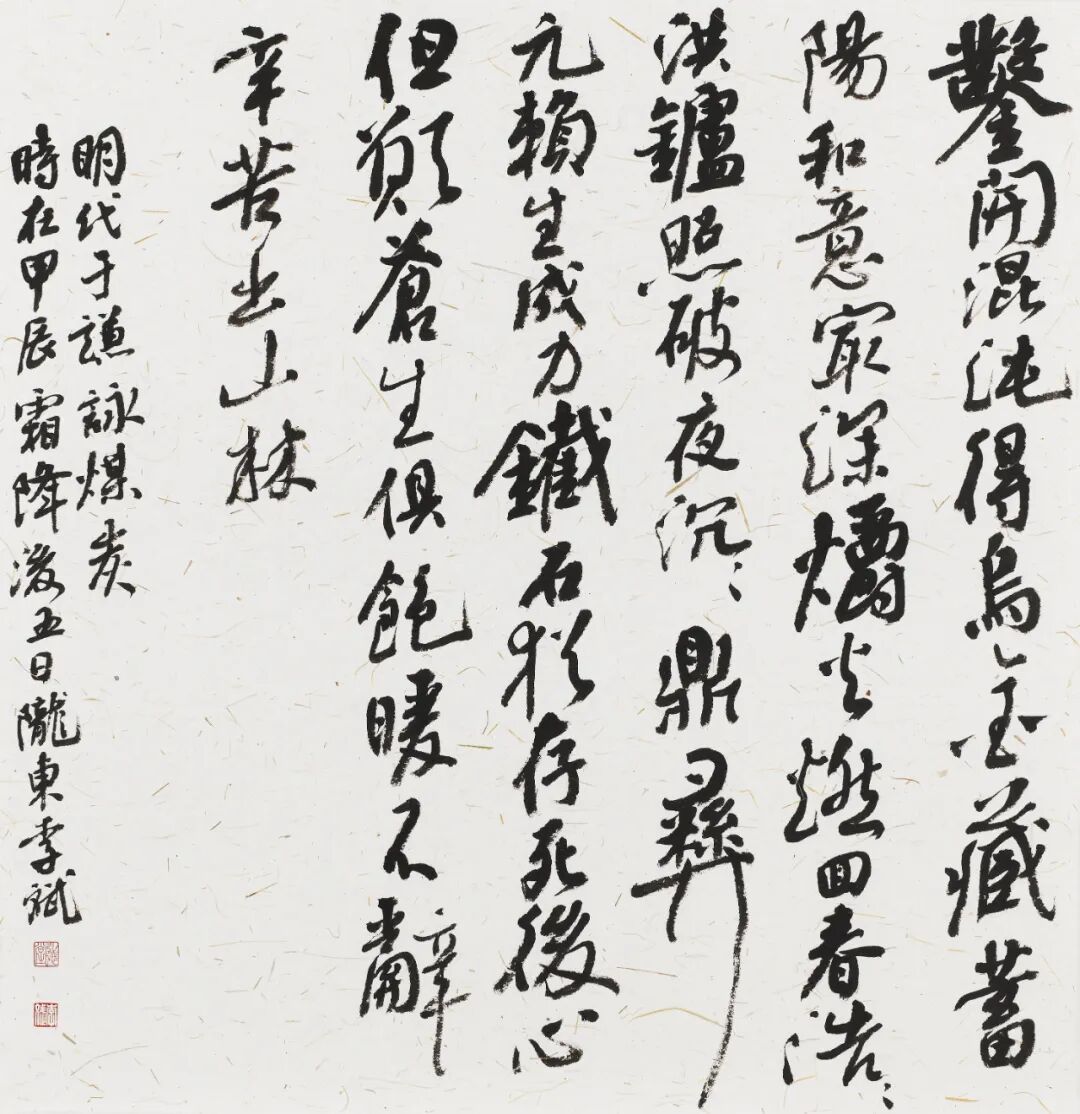 鑿開混沌得烏金藏蓄
陽和意最深爝火燃回春浩〻
洪鑪照破夜沉〻鼎彞
元賴生成力鐵石猶存死後心
但願蒼生俱飽暖不辭
辛苦出山林
明代于謙詠煤炭
時在甲辰霜降後五日隴東李